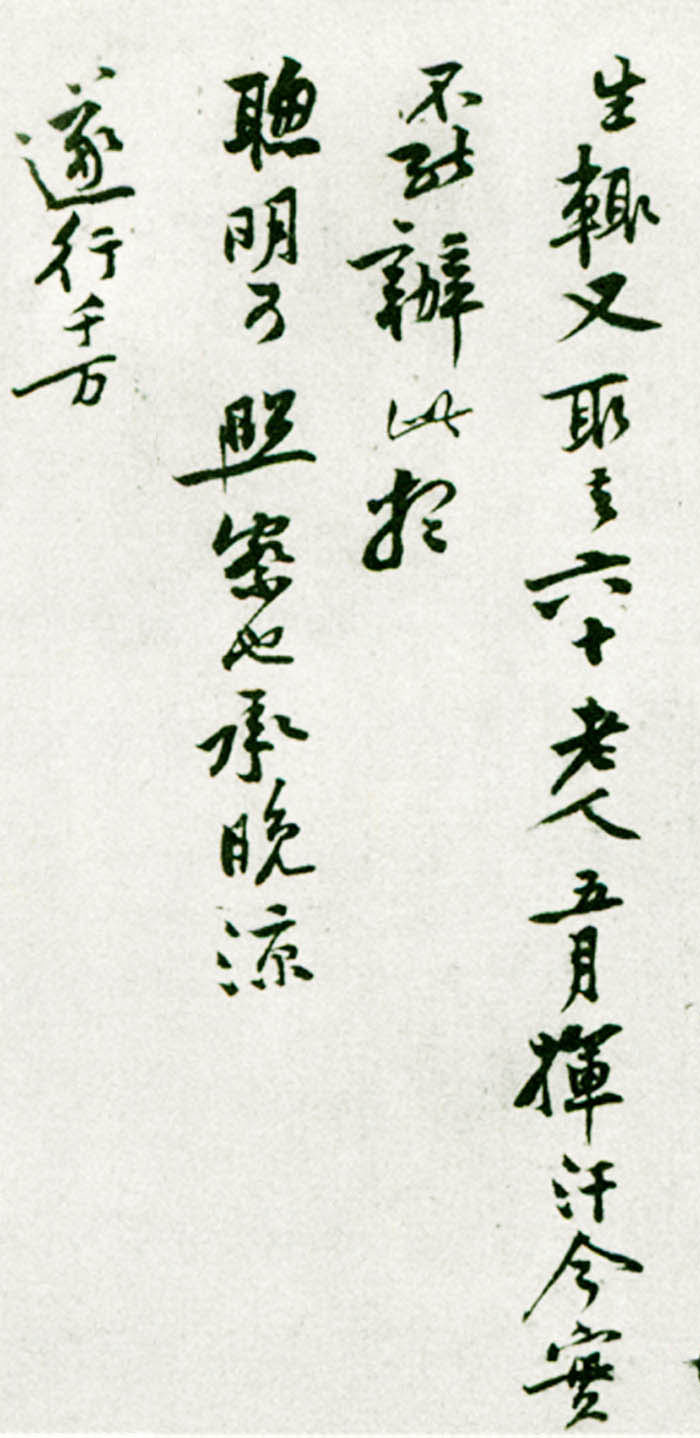 生輒又取去六十老人五月揮汗今實
不能辦此想
聰明可照察也承晚涼
遂行千万